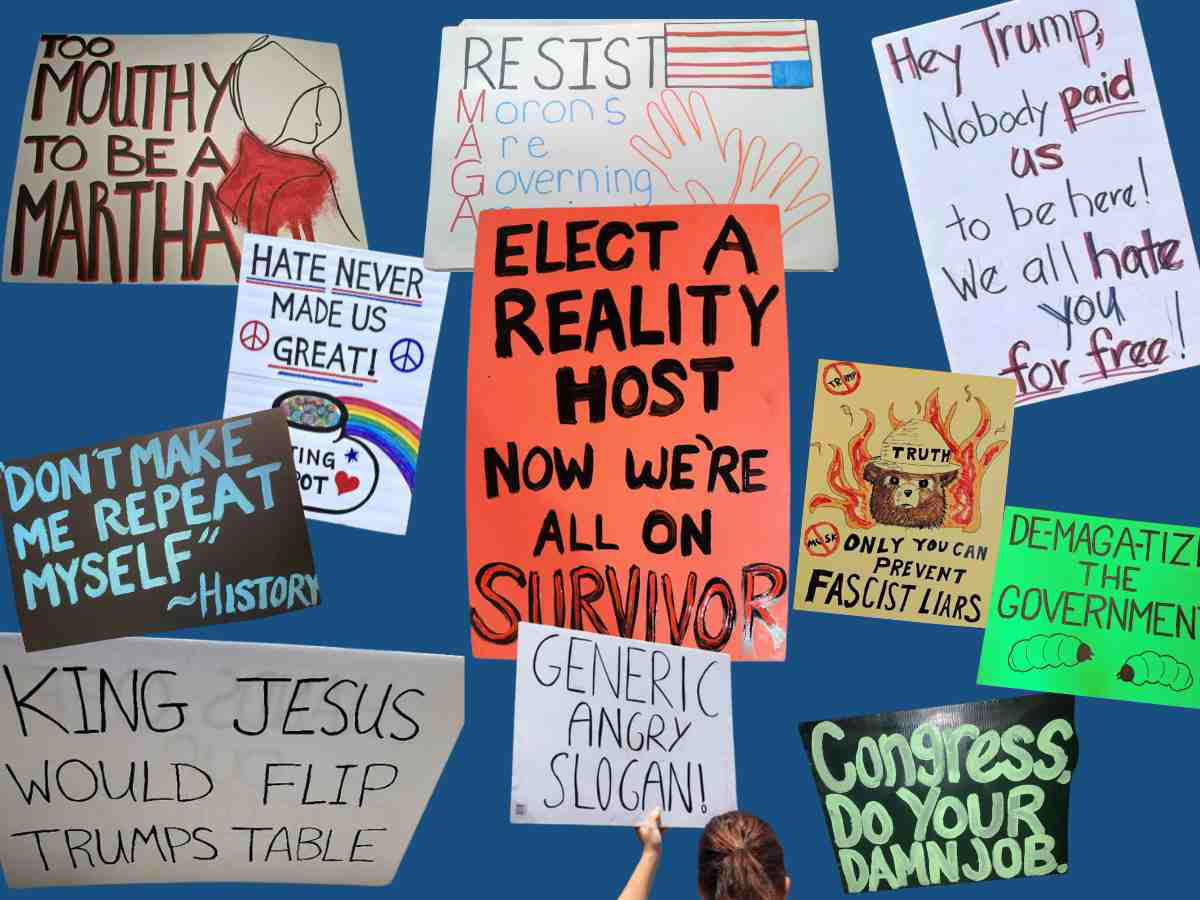 TOO
MOUTHY
TO BE A
MARTHA
RESIST
Morons
Are
Governing
A
Hey Trump,
Nobody paid
us
to be here!
We all hate
you
for free!
HATE NEVER
MADE US
GREAT!
TING
POT
ELECT A
REALITY
HOST
NOW WE'RE
ALL ON
SURVIVOR
TRUMP
TRUTH
MUSK
ONLY YOU CAN
PREVENT
FASCIST LIARS
"DON'T MAKE
ME REPEAT
MYSELF"
~HISTORY
DE-MAGA-TIZE
THE
GOVERNMENT
KING JESUS
WOULD FLIP
TRUMPS TABLE
GENERIC
ANGRY
SLOGAN!
Congress.
DO YOUR
DAMN JOB.